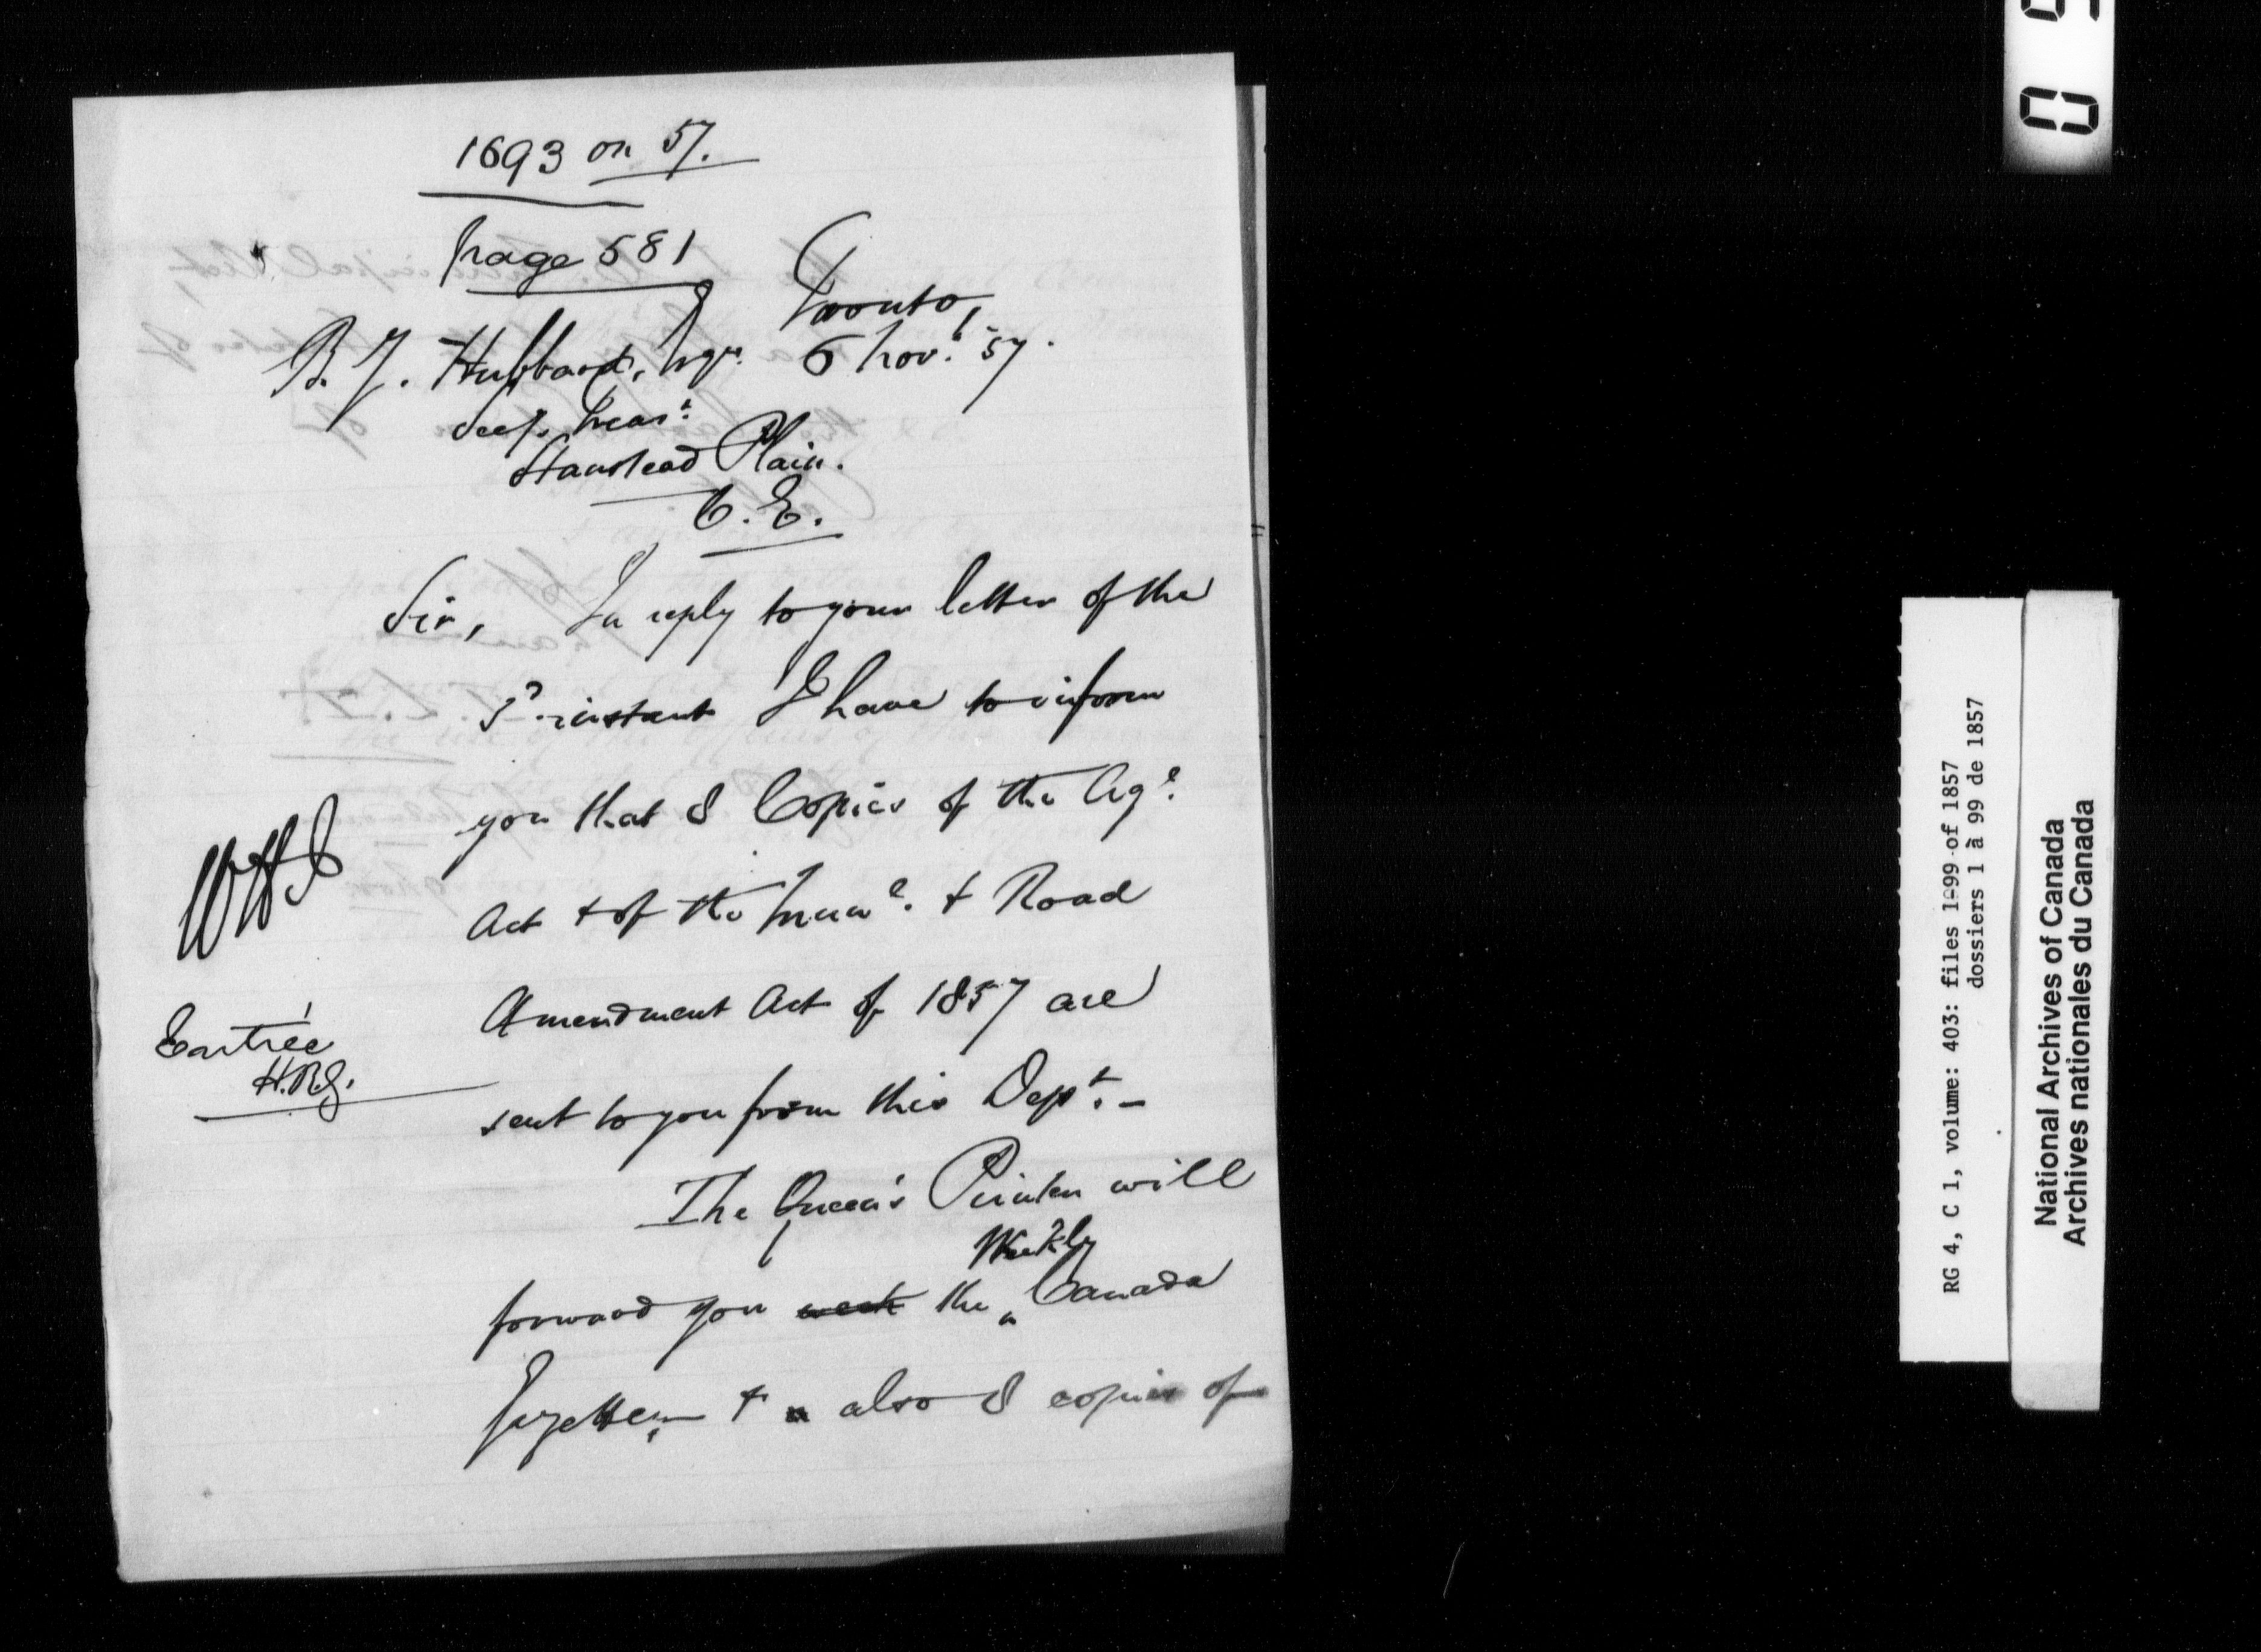 1693 on 57.
page 581
Toronto,
6 Nov.r 57.
B. J. Hubbard, Esqr.
Secy. Treas.r
Stanstead Plain.
C. E.
Sir, In reply to your letter of the
3d. instant I have to inform
you that 8 Copies of the Agl.
Act & of the Munl. & Road
Amendment Act of 1857 are
sent to you from this Dept. –
The Queen's Printer will
Weekly
forward you the Canada
Gazette, & also 8 copies of
Entrée
H.R.G.
RG 4, C 1, volume: 403: files 1-99 of 1857
dossiers 1 à 99 de 1857
National Archives of Canada
Archives nationales du Canada